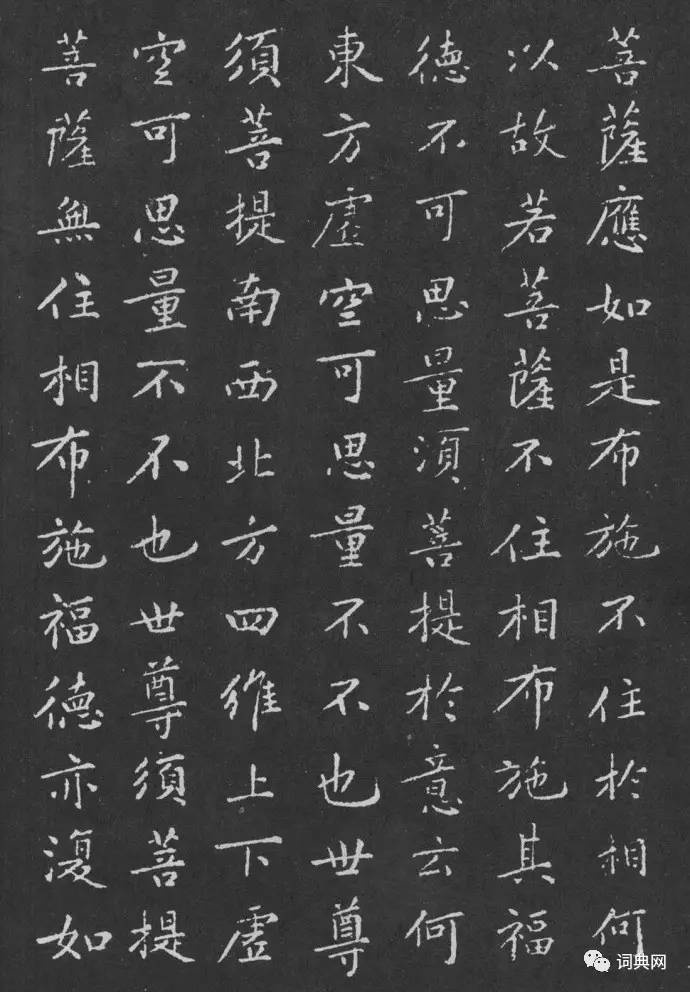 菩薩應如是布施不住於相何
以故若菩薩不住相布施其福
德不可思量須菩提於意云何
東方虛空可思量不不也世尊
須菩提南西北方四維上下虛
空可思量不不也世尊須菩提
菩薩無住相布施福德亦復如
词典网